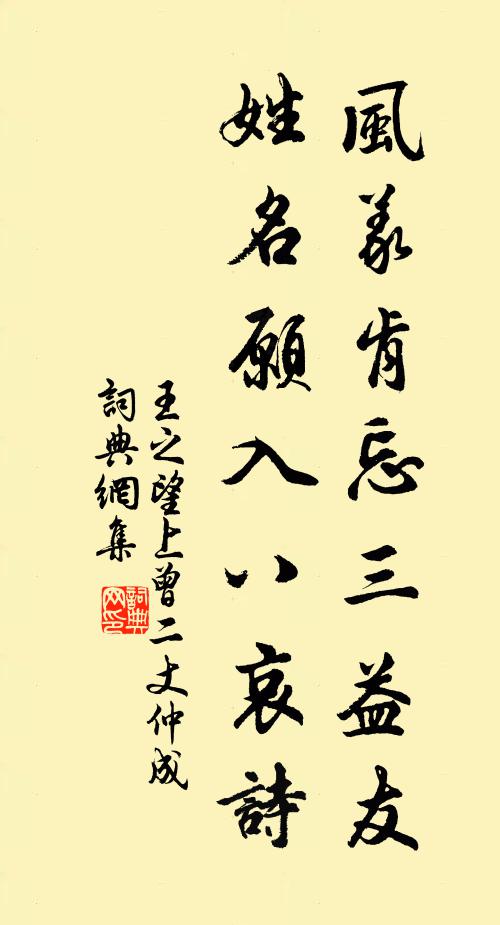 風義肯忘三益友
姓名願入八哀詩
王之望上曾二丈仲成
詞典網集
詞典
网印